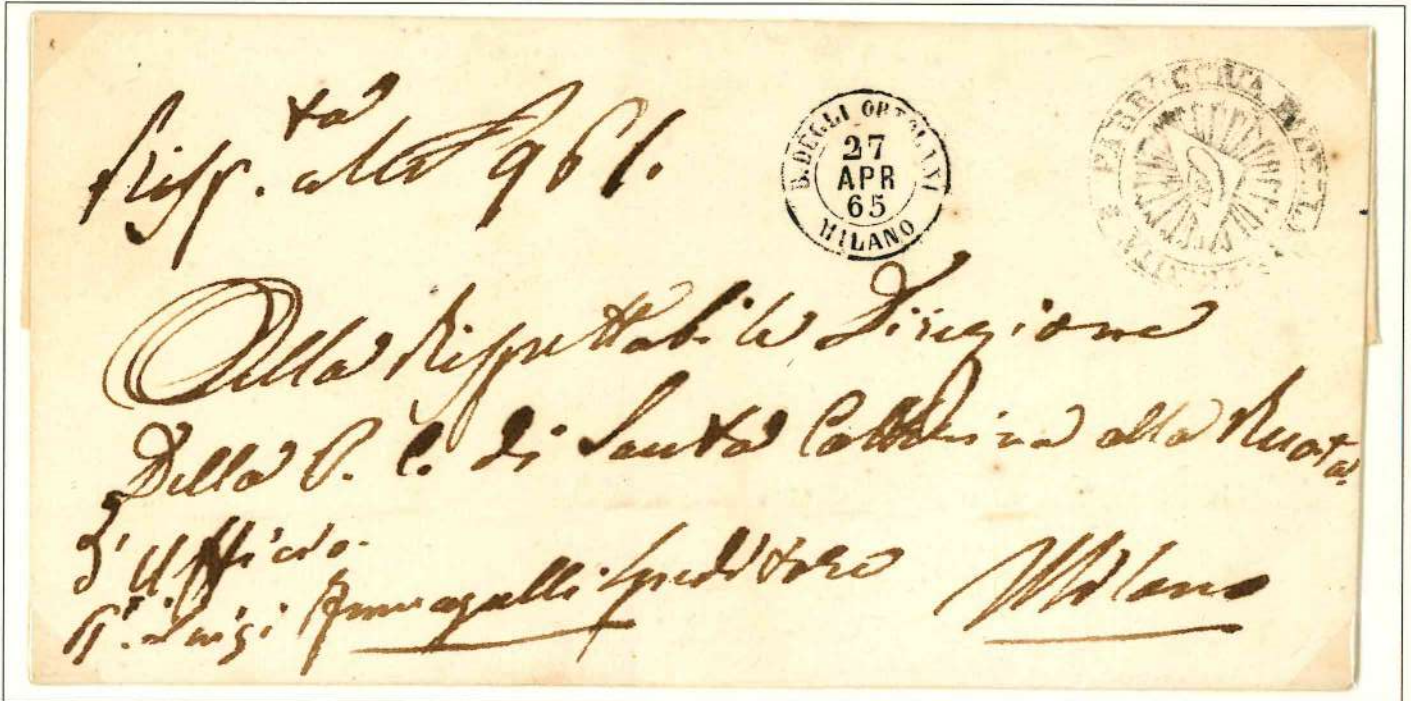 Risp.ta alla 961.
B. DEGLI ORTOLANI
27
APR
65
MILANO
FABBRICERIA
Alla Rispettabile Direzione
Della P. C. di Santa Catterina alla Ruota
D'Ufficio.
Luigi Fumagalli Speditore
Milano